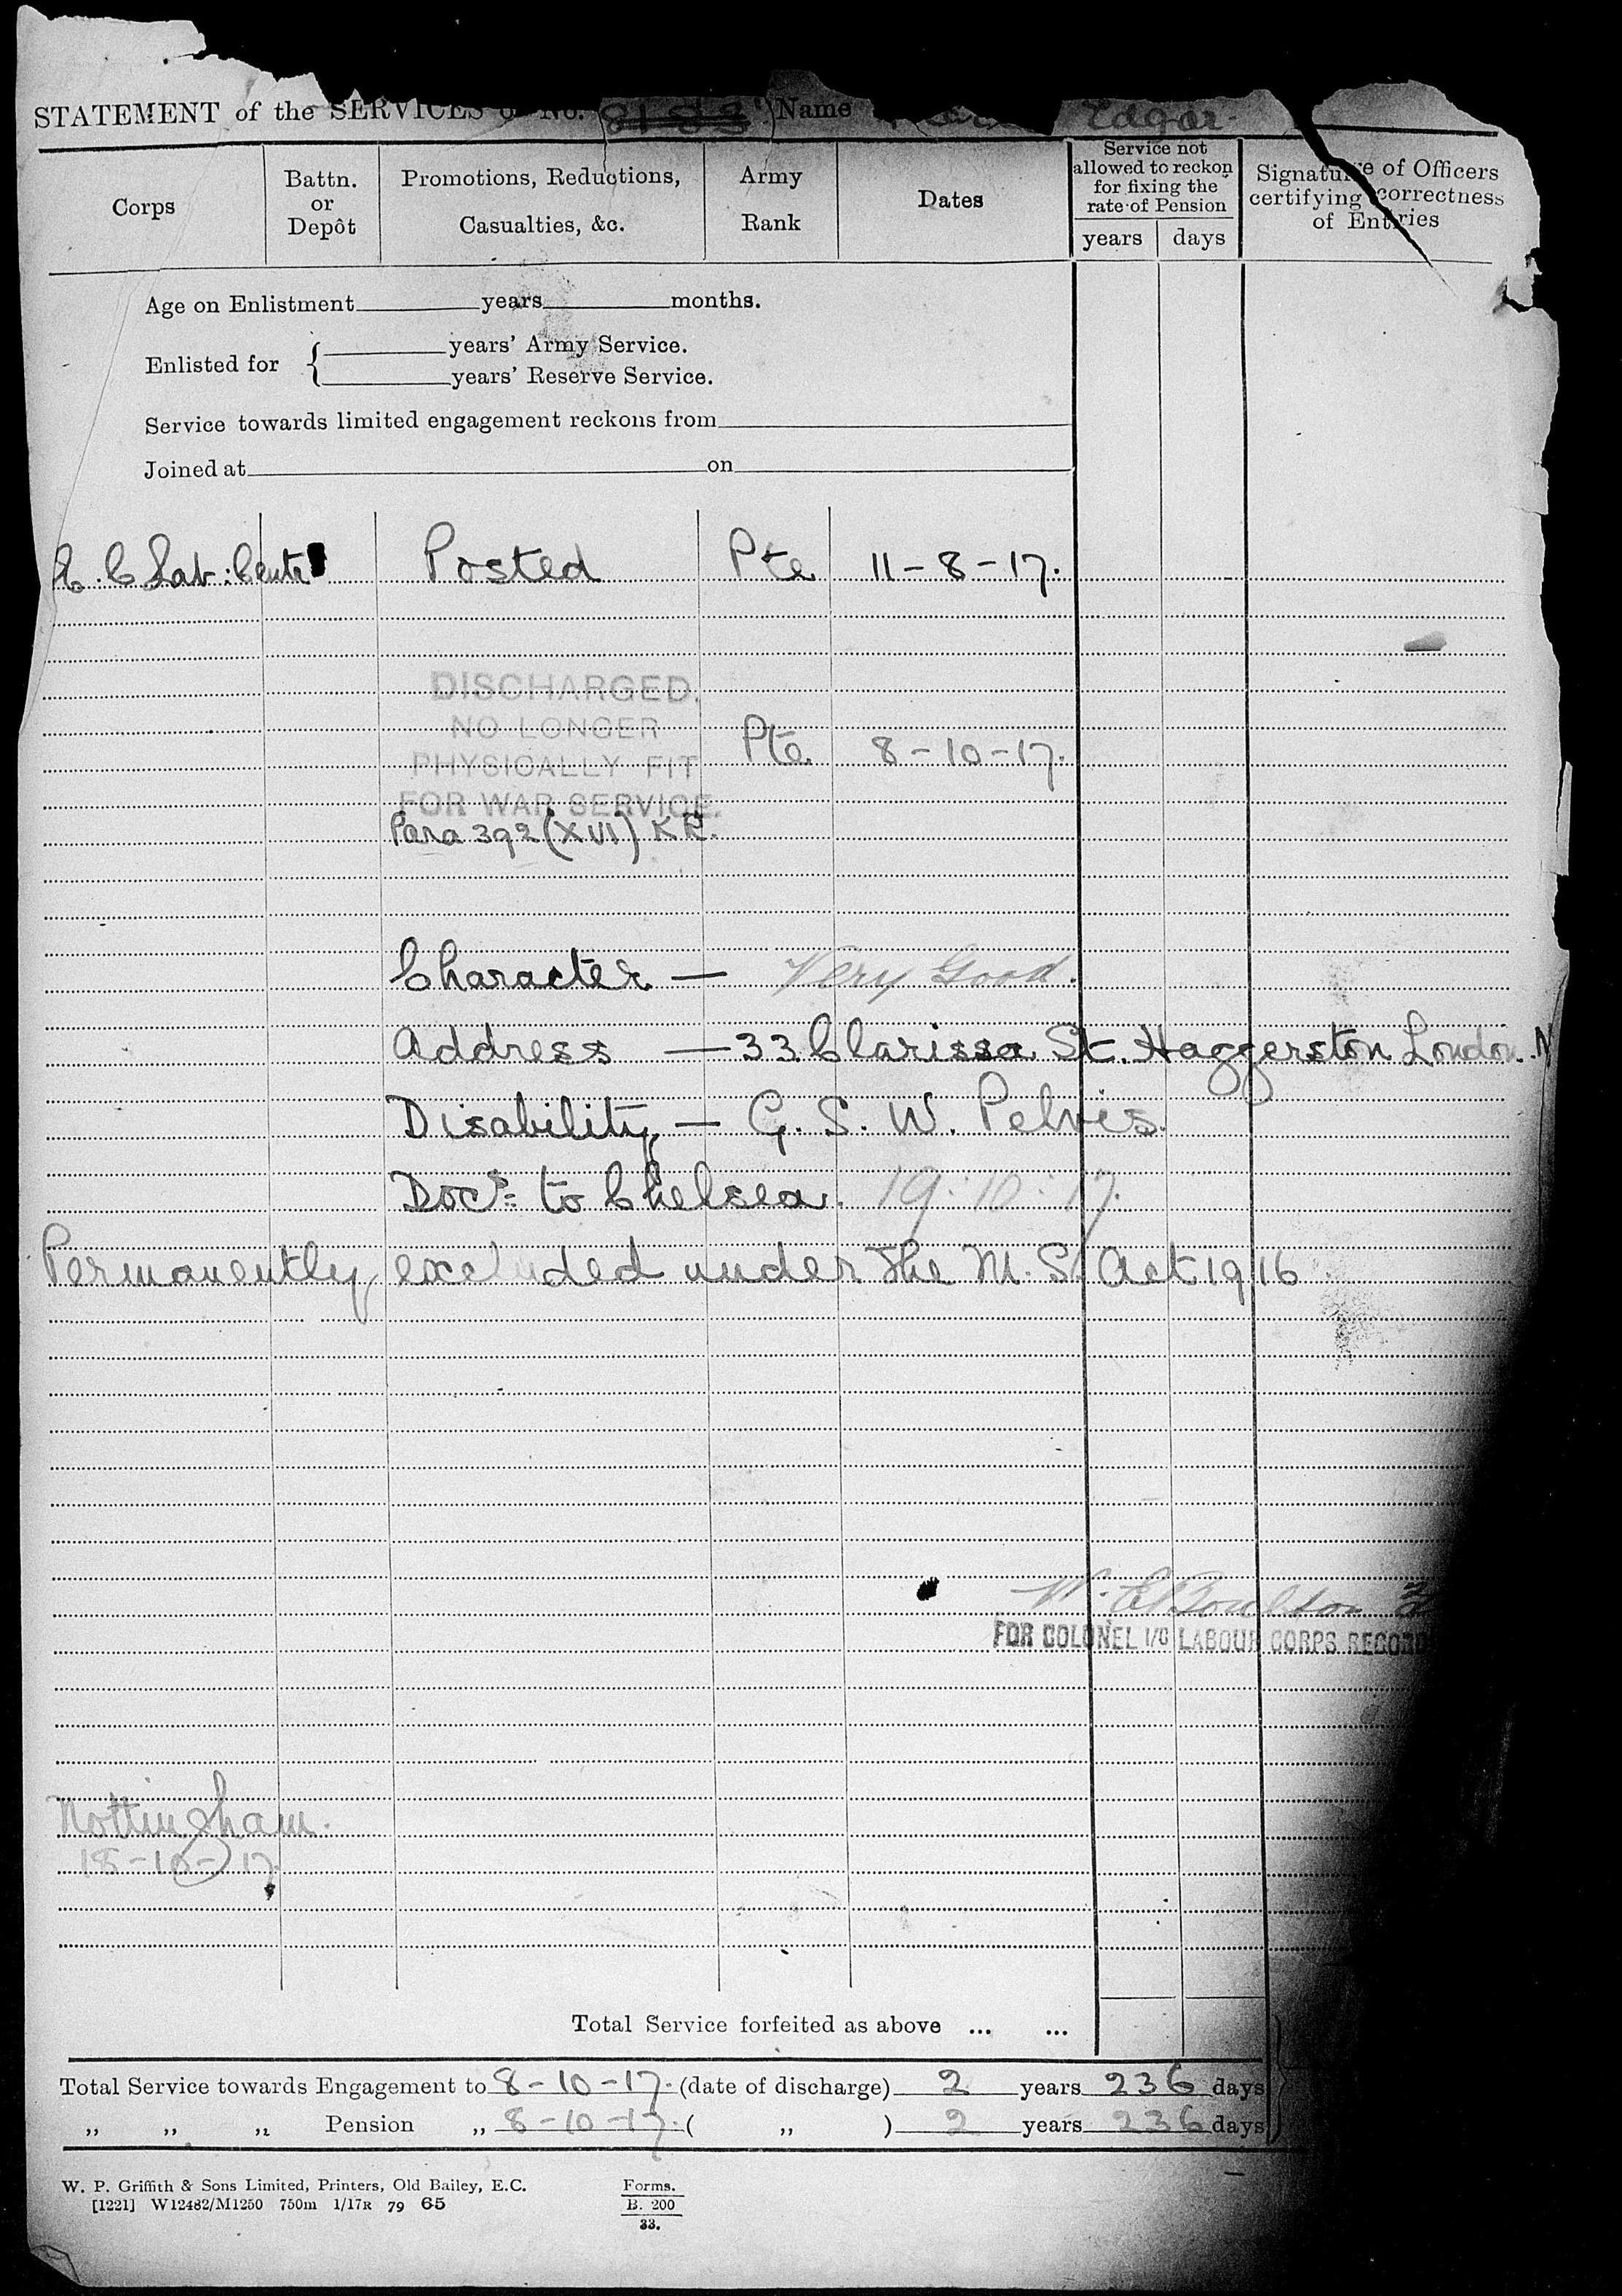 STATEMENT of the SERVICES of No. 8188 Name Edgar
Corps
Battn. or Depôt
Promotions, Reductions, Casualties, &c.
Army Rank
Dates
Service not allowed to reckon for fixing the rate of Pension
years days
Signature of Officers certifying correctness of Entries
Age on Enlistment years months.
Enlisted for { years' Army Service.
years' Reserve Service.
Service towards limited engagement reckons from
Joined at on
Lab: Centr Posted Pte 11-8-17.
DISCHARGED.
NO LONGER
PHYSICALLY FIT Pte 8-10-17.
FOR WAR SERVICE.
Para 392 (XVI) KR.
Character — Very Good.
Address — 33 Clarissa St. Haggerston London. N
Disability — G. S. W. Pelvis.
Docs: to Chelsea. 19:10:17.
Permanently excluded under the M. S. Act 1916
W. E. Boulton
FOR COLONEL I/C LABOUR CORPS RECORD
Nottingham.
18-10-17.
Total Service forfeited as above ... ...
Total Service towards Engagement to 8-10-17. (date of discharge) 2 years 236 days
„ „ „ Pension „ 8-10-17. ( „ ) 2 years 236 days
W. P. Griffith & Sons Limited, Printers, Old Bailey, E.C.
[1221] W12482/M1250 750m 1/17R 79 65
Forms.
B. 200
33.